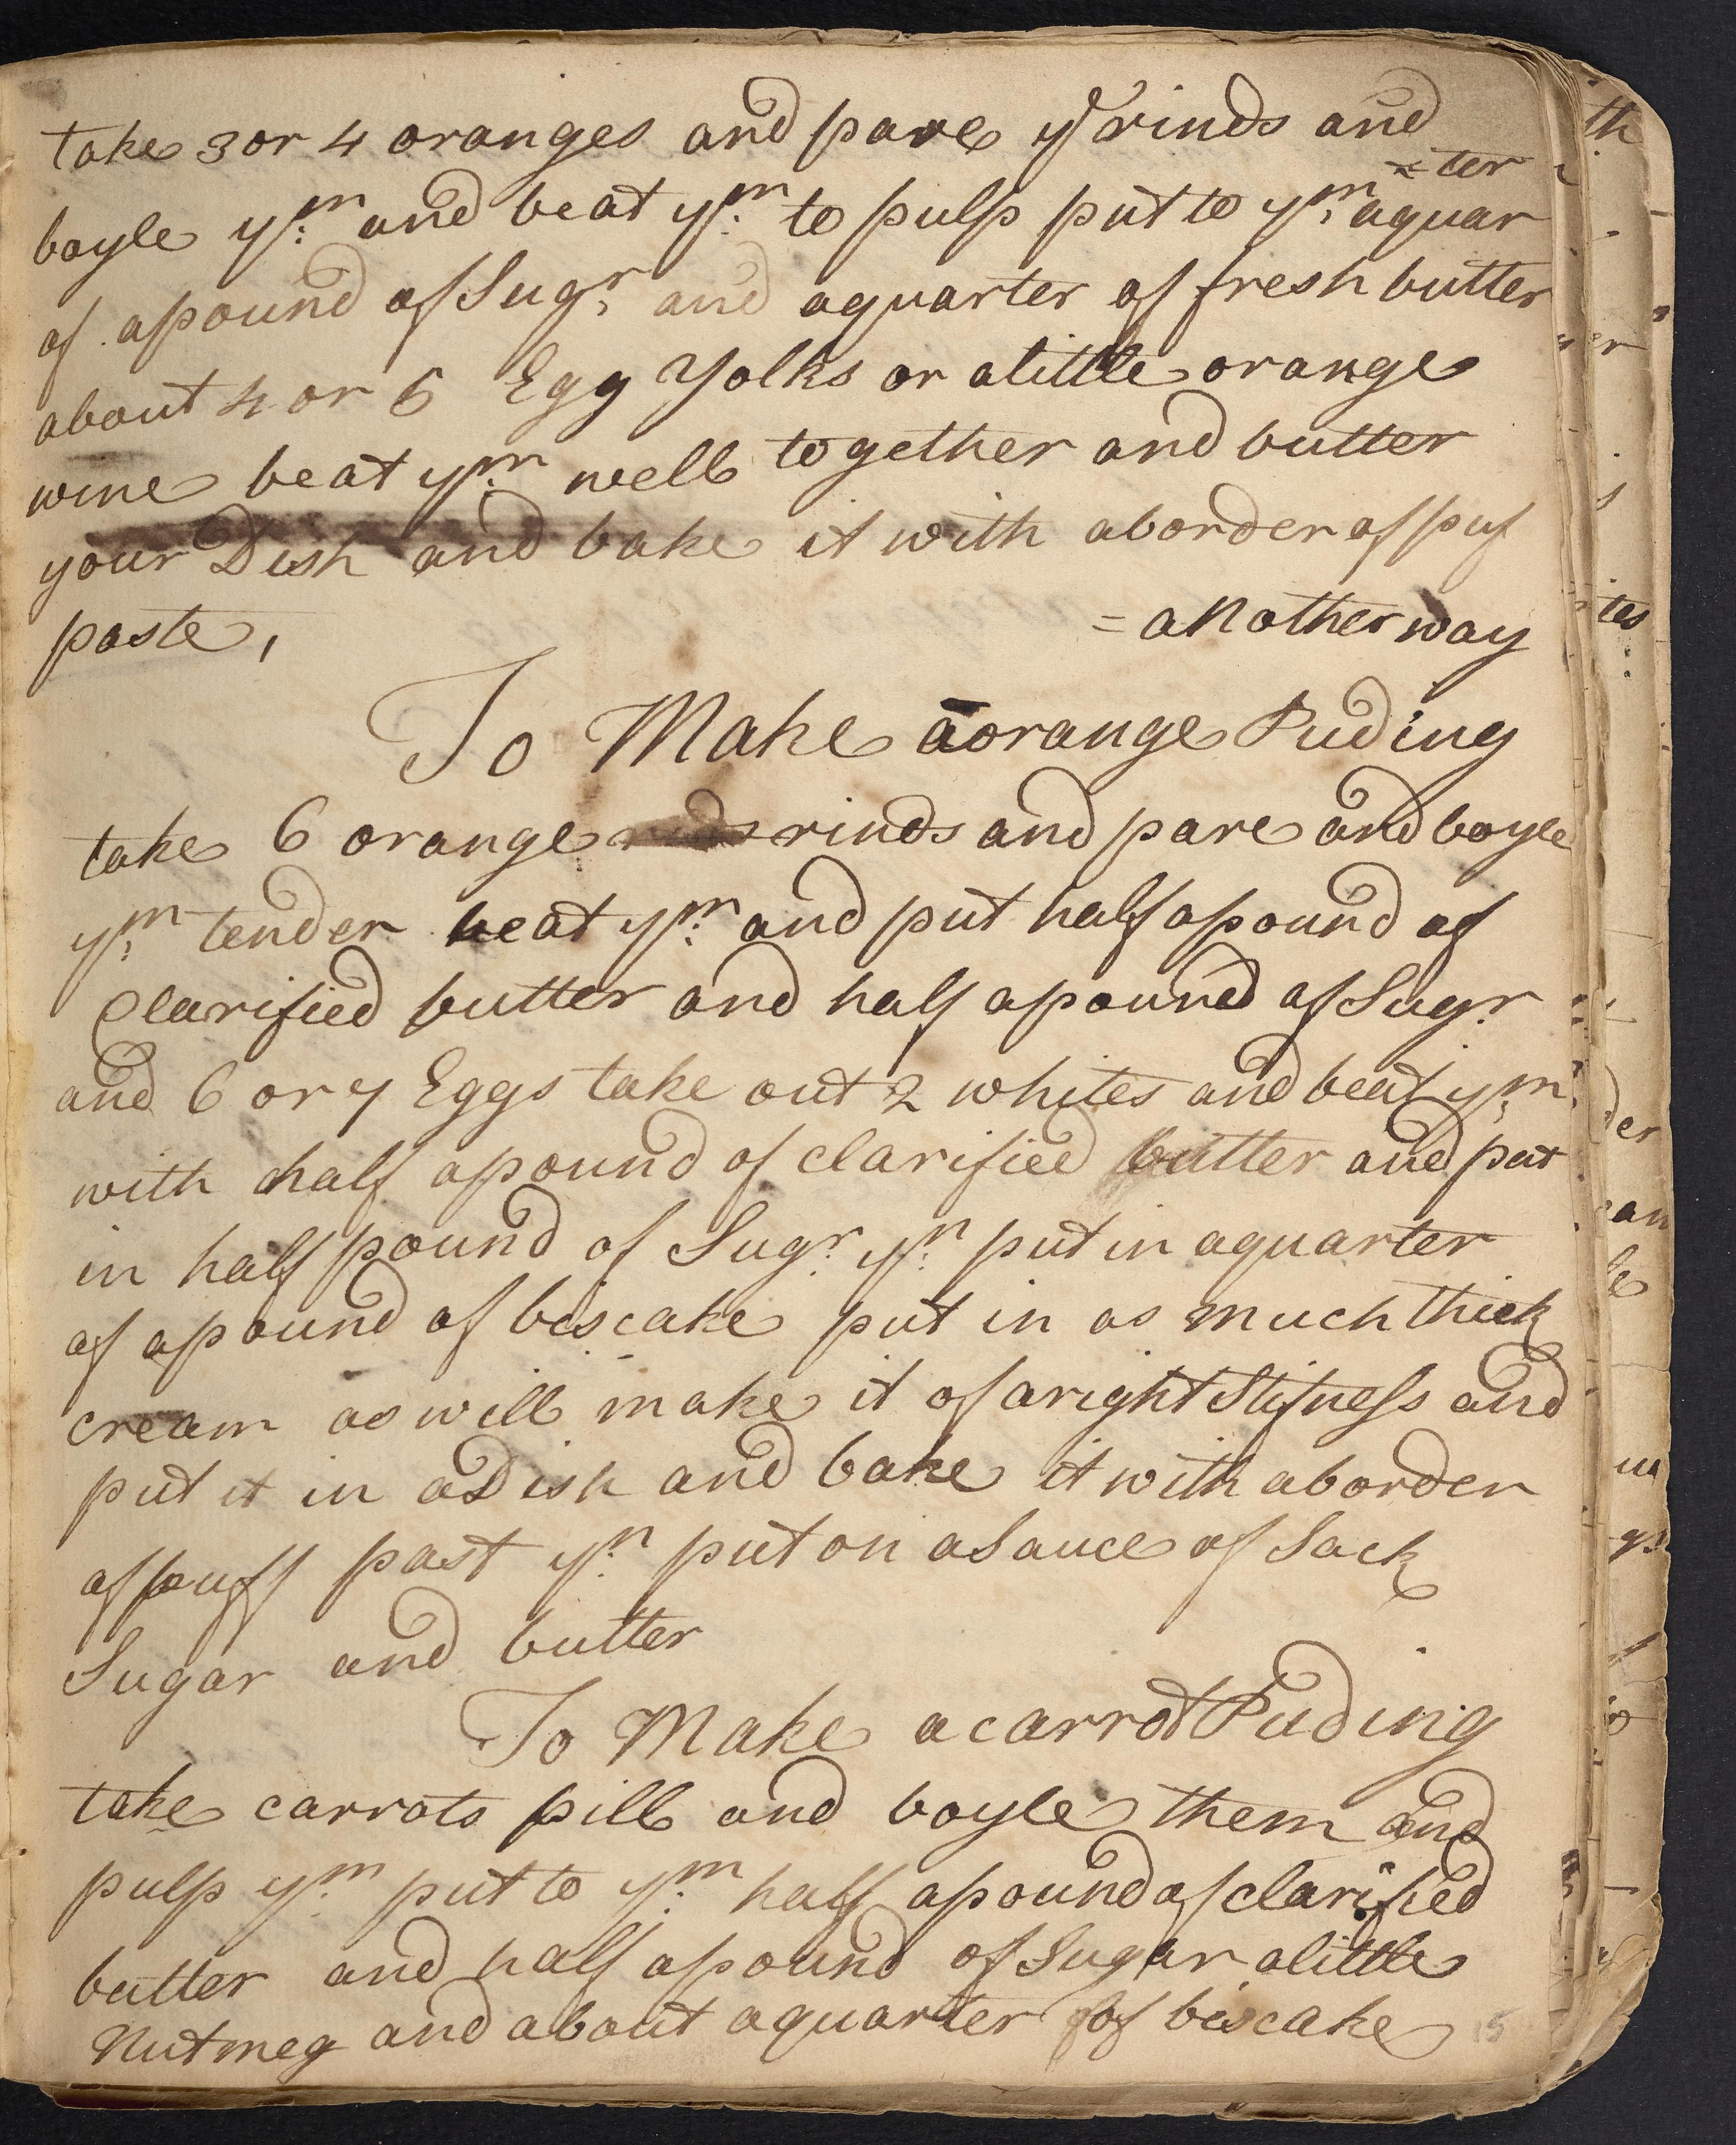 take 3 or 4 oranges and pare ye rinds and
boyle ym: and beat ym: to pulp put to ym: aquar
=ter
of apound of Sugr: and aquarter of fresh butter
about 4 or 5 Egg Yolks or alittle orange
wine beat ym: well together and butter
your Dish and bake it with aborder of puf
paste,
=another way
To Make aorange Puding
take 6 orange rinds and pare and boyle
ym: tender beat ym: and put half apound of
Clarified butter and half apound of Sugr:
and 6 or 7 Eggs take out 2 whites and beat ym:
with half apound of clarified butter and put
in half pound of Sugr: yn: put in aquarter
of apound of biscake put in as much thick
cream as will make it of aright Stifness and
put it in aDish and bake it with aborder
of puff past yn: put on aSauce of Sack
Sugar and butter
To Make acarrot Puding
take carrots pill and boyle them and
pulp ym: put to ym: half apound of clarified
butter and half apound of Sugar alittle
Nutmeg and about aquarter of biscake
15